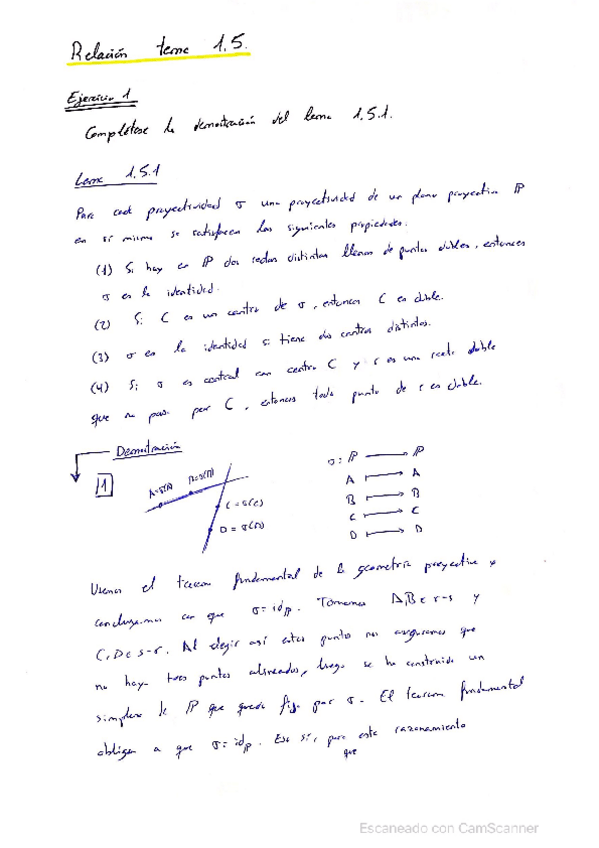 Relación tema 1.5.
Ejercicio 1
Complétese la demostración del lema 1.5.1.
Lema 1.5.1
Para cada proyectividad σ una proyectividad de un plano proyectivo ℙ
en sí mismo se satisfacen las siguientes propiedades:
(1) Si hay en ℙ dos rectas distintas llenas de puntos dobles, entonces
σ es la identidad.
(2) Si C es un centro de σ, entonces C es doble.
(3) σ es la identidad si tiene dos centros distintos.
(4) Si σ es central con centro C y r es una recta doble
que no pasa por C, entonces todo punto de r es doble.
Demostración
1
A=σ(A) B=σ(B)
C=σ(C)
D=σ(D)
σ: ℙ → ℙ
A ↦ A
B ↦ B
C ↦ C
D ↦ D
Usamos el teorema fundamental de la geometría proyectiva y
concluyamos con que σ=id_ℙ. Tomamos A,B ∈ r-s y
C,D ∈ s-r. Al elegir así estos puntos nos aseguramos que
no haya tres puntos alineados, luego se ha construido un
símplex de ℙ que queda fijo por σ. El teorema fundamental
obliga a que σ=id_ℙ. Eso sí, para este razonamiento
que
Escaneado con CamScanner